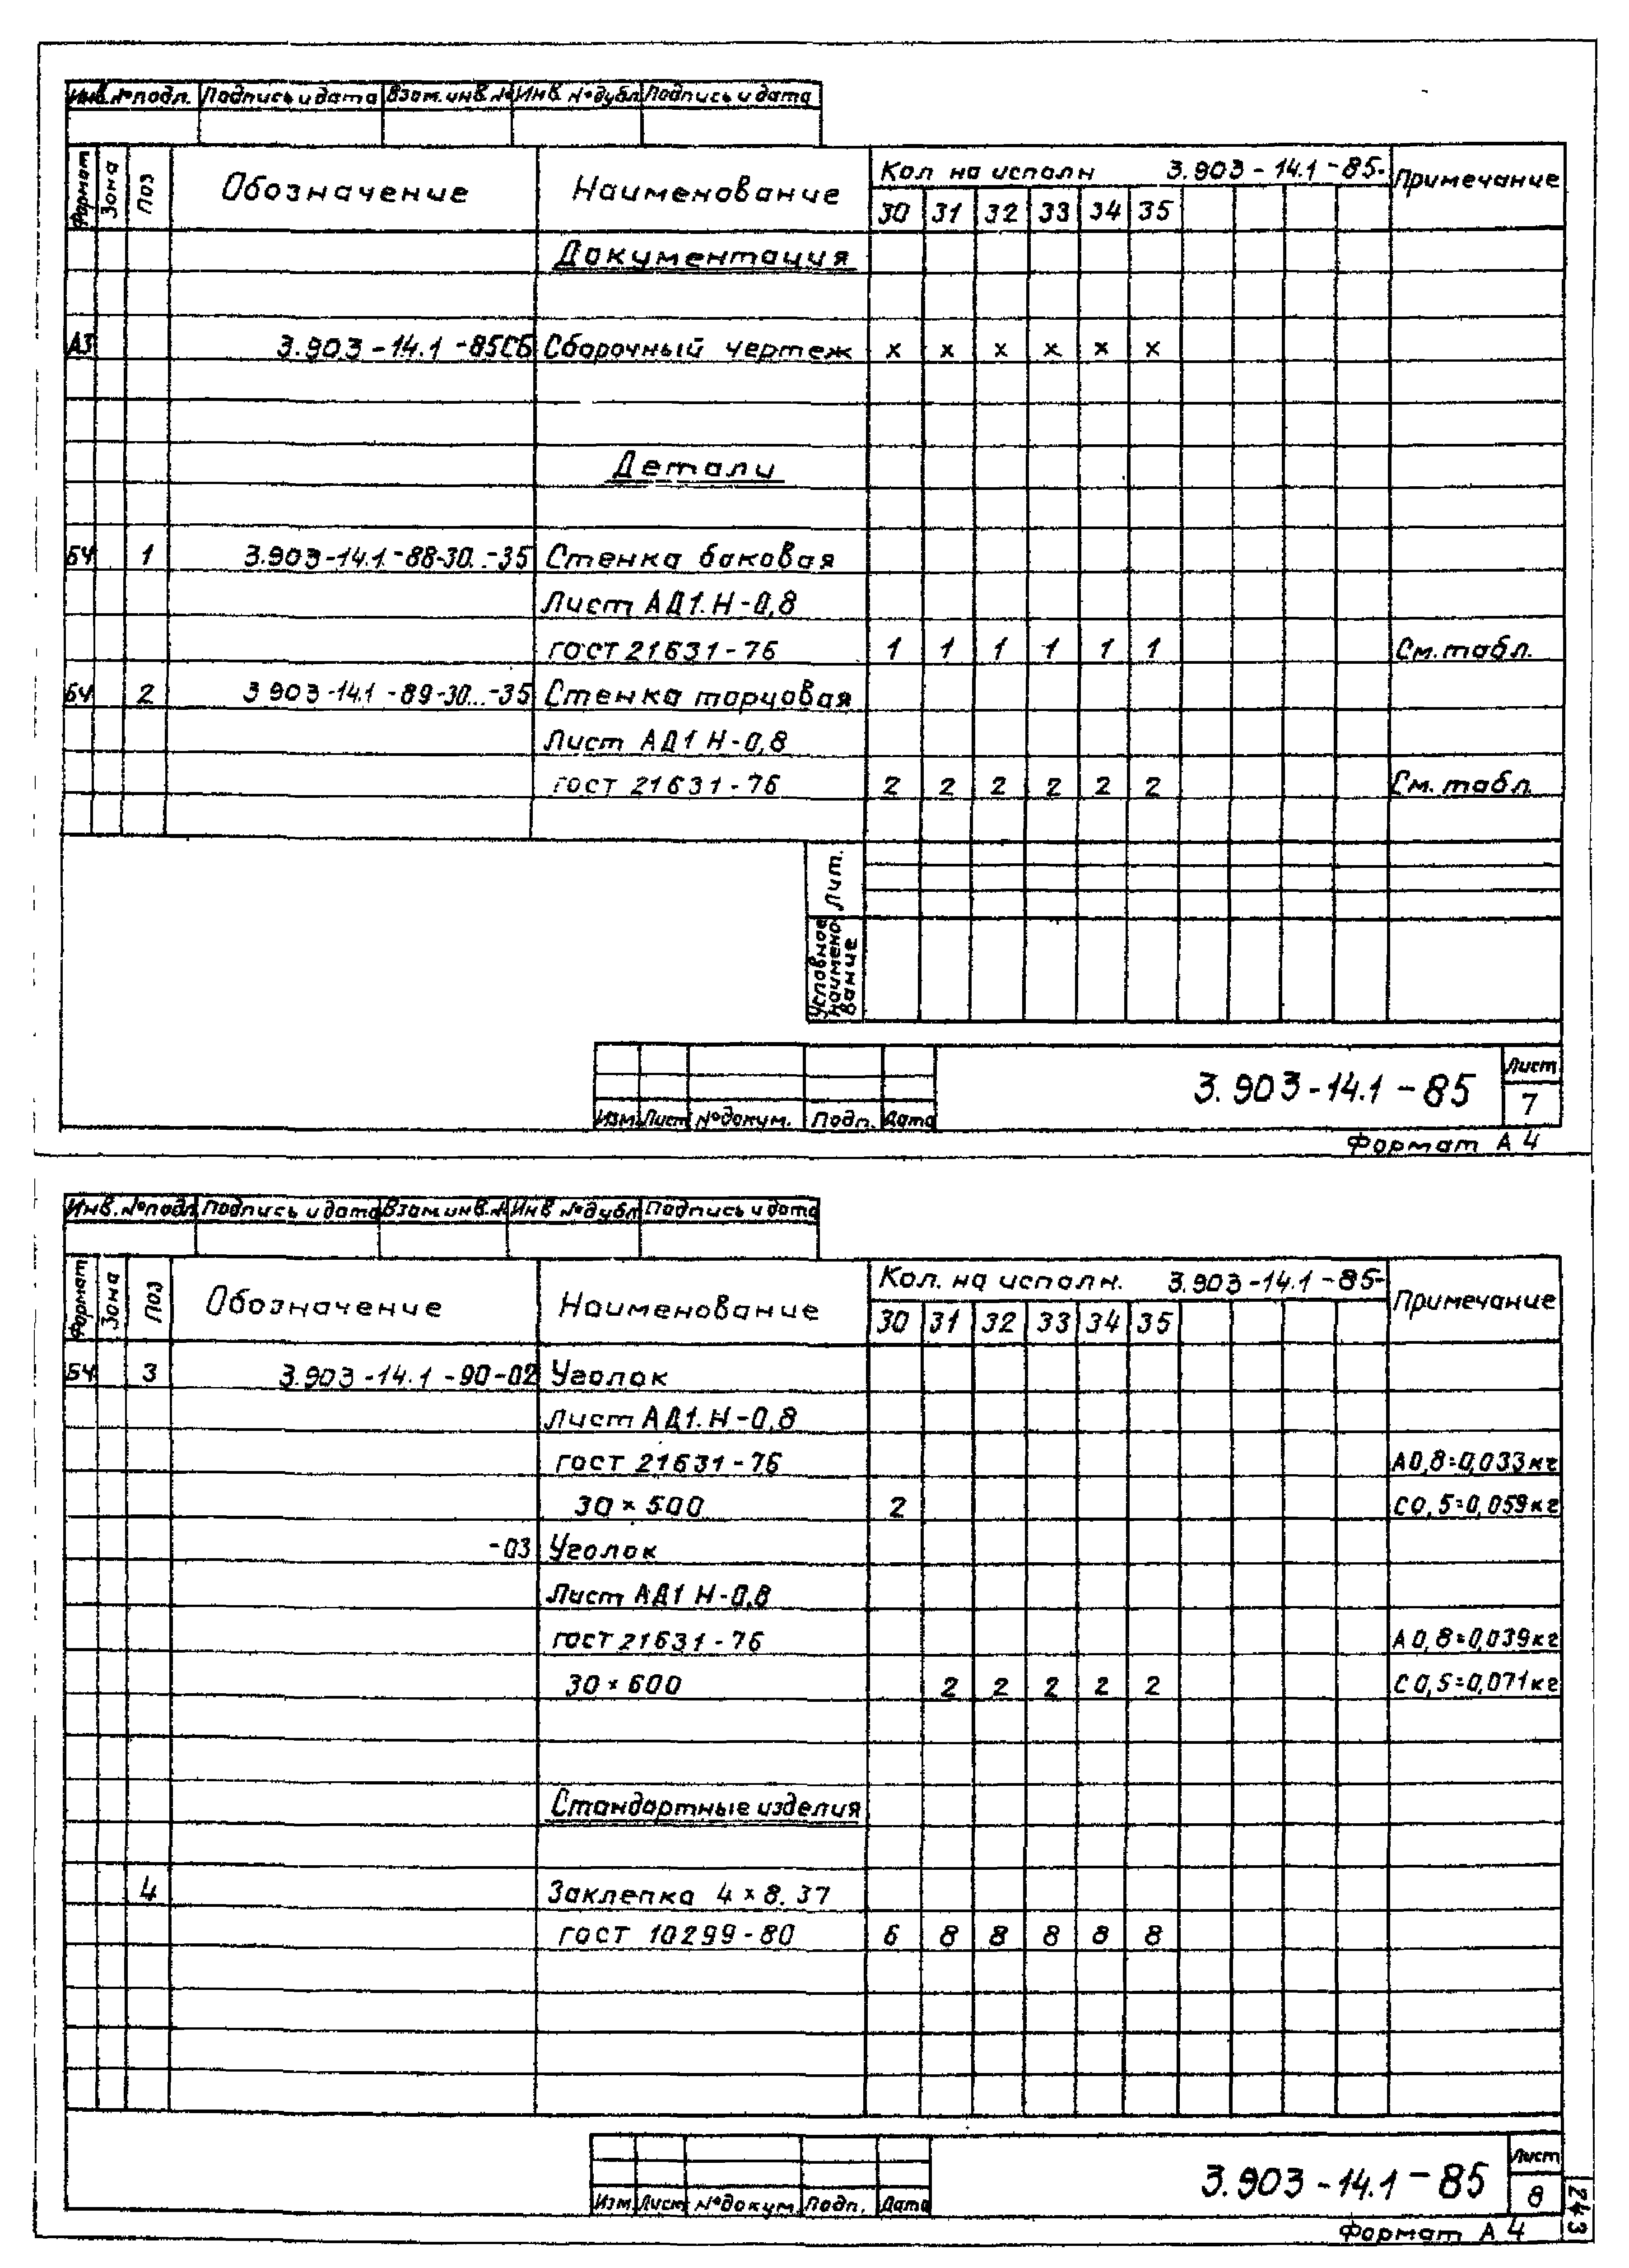 Инв.№подл. Подпись и дата Взам.инв.№ Инв №дубл Подпись и дата
Формат Зона Поз Обозначение Наименование Кол на исполн 3.903-14.1-85- Примечание
30 31 32 33 34 35
Документация
А3 3.903-14.1-85СБ Сборочный чертеж х х х х х х
Детали
БЧ 1 3.903-14.1-88-30...-35 Стенка боковая
Лист АД1.Н-0,8
ГОСТ 21631-76 1 1 1 1 1 1 См.табл.
БЧ 2 3 903-14.1-89-30...-35 Стенка торцовая
Лист АД1 Н-0,8
ГОСТ 21631-76 2 2 2 2 2 2 См.табл.
Лит.
Условное наименование
3.903-14.1-85 Лист
7
Изм. Лист №докум. Подп. Дата
Формат А4
Инв.№подл Подпись и дата Взам.инв.№ Инв №дубл Подпись и дата
Формат Зона Поз Обозначение Наименование Кол. на исполн. 3.903-14.1-85- Примечание
30 31 32 33 34 35
БЧ 3 3.903-14.1-90-02 Уголок
Лист АД1.Н-0,8
ГОСТ 21631-76 А0,8=0,033кг
30×500 2 С0,5=0,059кг
-03 Уголок
Лист АД1 Н-0,8
ГОСТ 21631-76 А0,8=0,039кг
30×600 2 2 2 2 2 С0,5=0,071кг
Стандартные изделия
4 Заклепка 4×8.37
ГОСТ 10299-80 6 8 8 8 8 8
3.903-14.1-85 Лист
8
Изм. Лист №докум. Подп. Дата
Формат А4
243